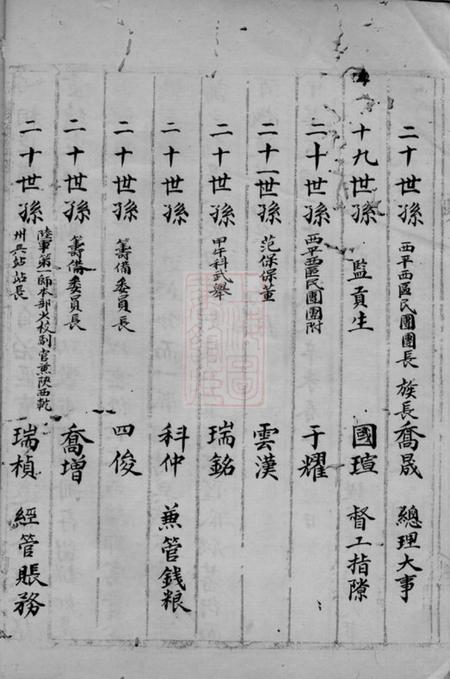 二十世孫 西平西區民團團長 族長喬晟 總理大事
十九世孫 監貢生 國瑄 督工指隙
二十世孫 西平西區民團團附 于耀
二十一世孫 范保保董 雲漢
二十世孫 甲午科武舉 瑞銘
二十世孫 科仲 兼管錢粮
二十世孫 籌備委員長 四俊
二十世孫 籌備委員長 喬增
二十世孫 陸軍第一師本部少校副官兼陝西乾州兵站站長 瑞楨 經管賬務